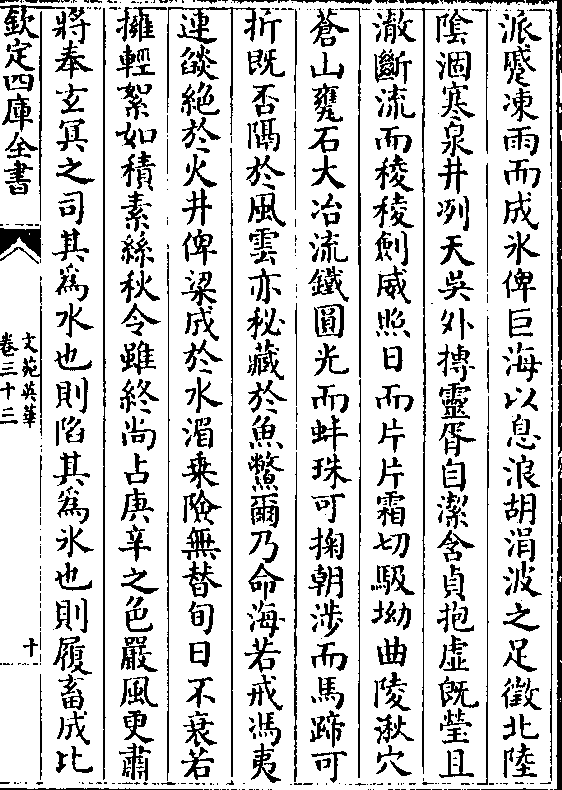 派蹙凍雨而成氷俾巨海以息浪胡涓波之足徵北陸
陰涸寒泉井冽天吳外摶靈胥自潔含貞抱虛既瑩且
澈斷流而稜稜劍威照日而片片霜切騣坳曲陵湫穴
蒼山甕石大冶流鐵圓光而蚌珠可掬朝涉而馬蹄可
折既否隔於風雲亦秘藏於魚鼈爾乃命海若戒馮夷
連燄絶於火井俾梁成於水湄乗險無替旬日不衰若
擁輕絮如積素絲秋令雖終尚占庚辛之色嚴風更肅
將奉玄冥之司其為水也則陷其為氷也則履畜成比
欽定四庫全書
文苑英華
卷三十二
十